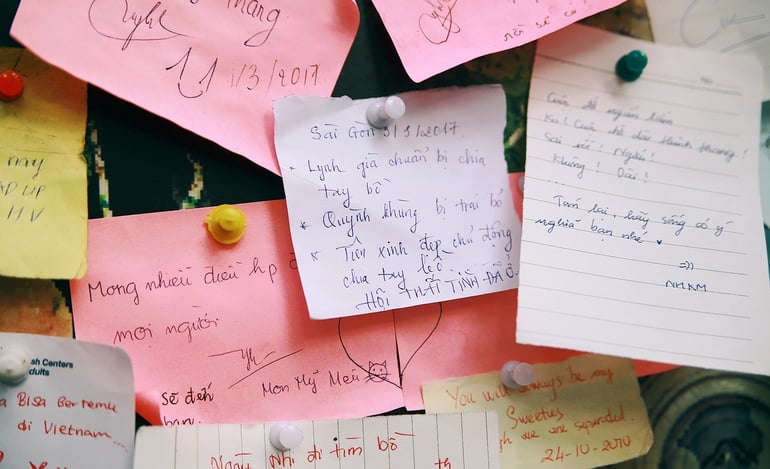 tháng
11/3/2017
nay
HV
Sài Gòn 3/3/2017
Lynh già chuẩn bị chia
tay bồ
Quỳnh khùng bị trai bỏ
Tiên xinh đẹp chủ động
chia tay
HỘI THẤT TÌNH
No
Cuộc đời ngắn lắm
Ko! Cuộc đời dài
Sai rồi! Ngắn!
Không! Dài!
...
Tóm lại, hãy sống có ý
nghĩa bạn nhé
=))
NHAM
Mong nhiều điều hp
mọi người
Mon Mỹ Mều
sẽ đến
bạn
sh Centers
dults
BISA BERTEMU
di VIETNAM...
You will always be my
Sweeties
we are separated.
24-10-2010
Ngày Nhi đi tìm bồ